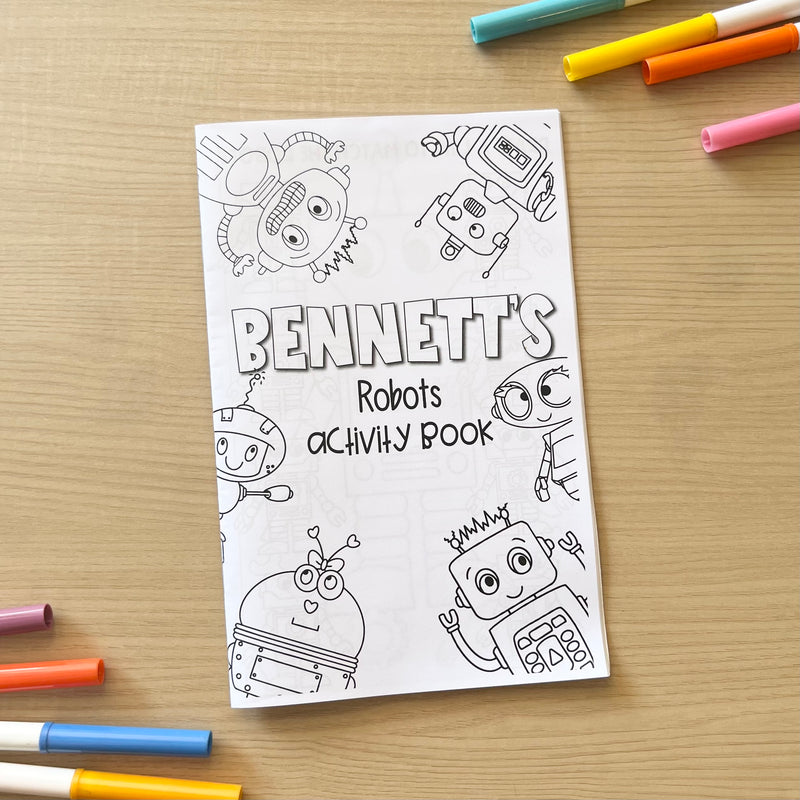 BENNETT'S
Robots
activity Book